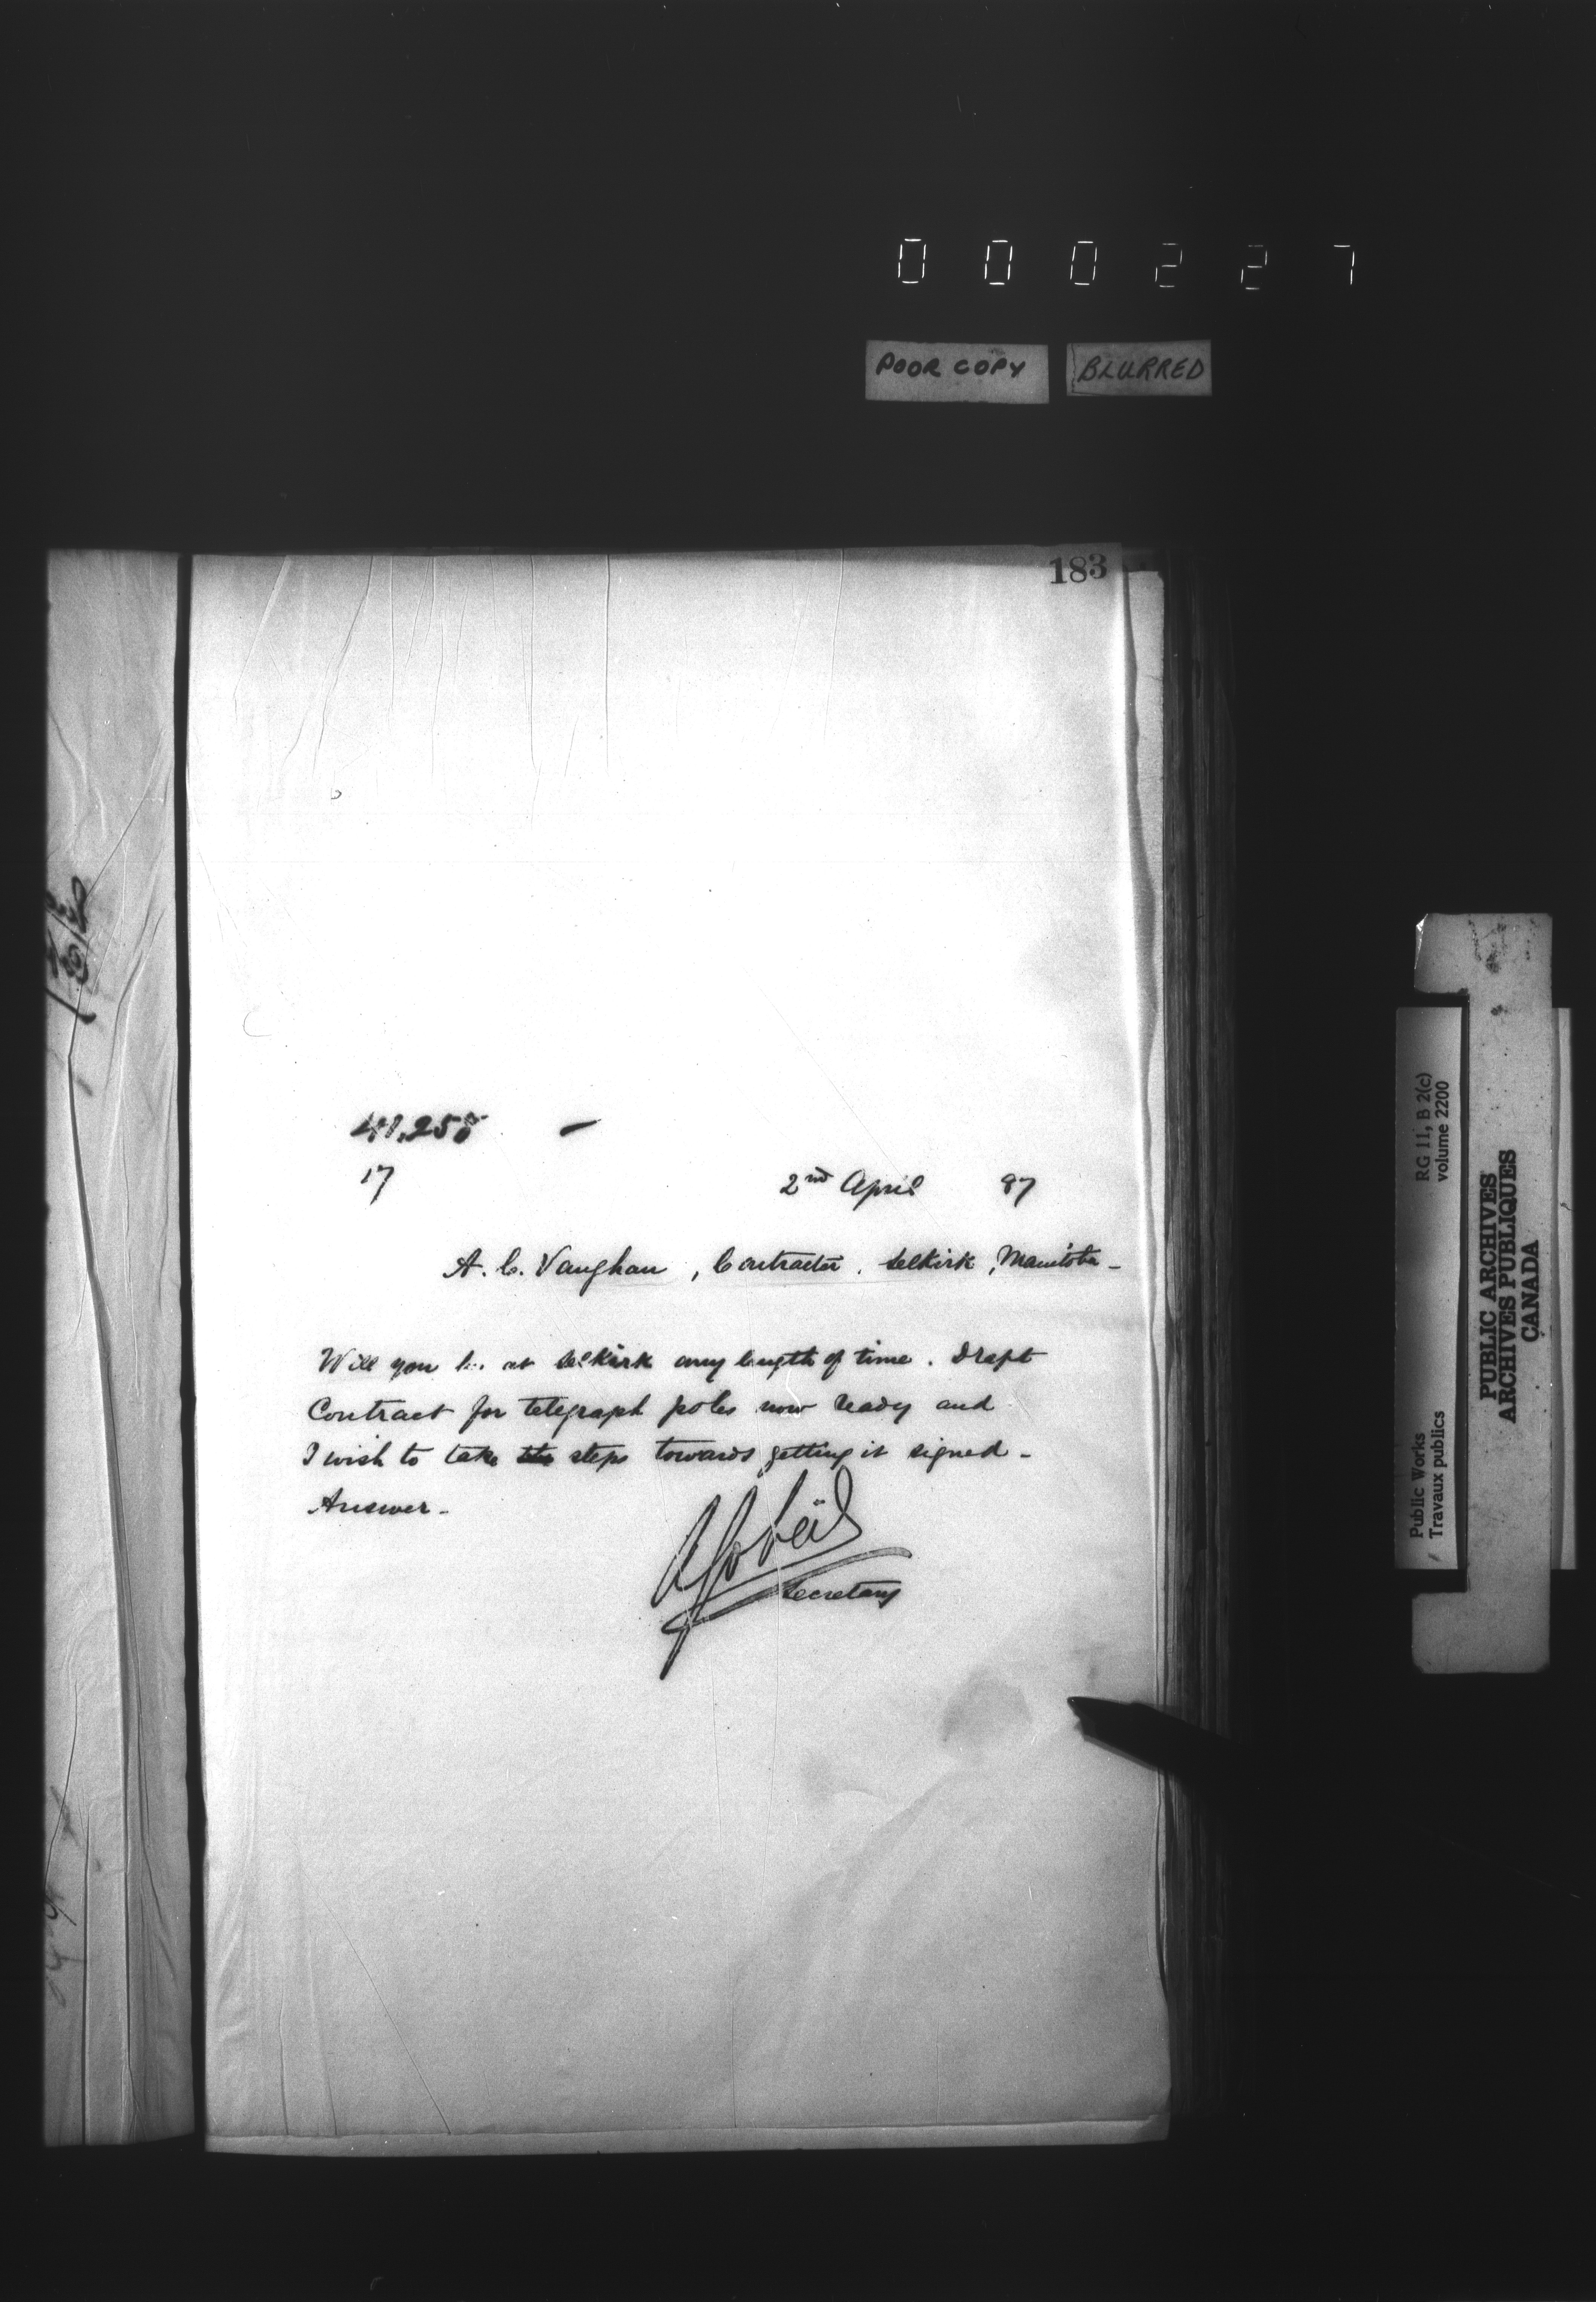 0 0 0 2 2 7
POOR COPY BLURRED
183
17
2nd April 87
A. C. Vaughan, Contractor. Selkirk, Manitoba -
Will you be at Selkirk any length of time. Draft
Contract for telegraph poles now ready and
I wish to take steps towards getting it signed -
Answer -
Secretary
RG 11, B 2(c)
volume 2200
Public Works
Travaux publics
PUBLIC ARCHIVES
ARCHIVES PUBLIQUES
CANADA